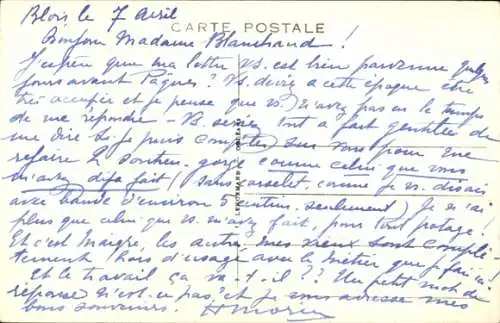 Blois, le 7 Avril
CARTE POSTALE
Bonjour Madame Blanchard !
J'espère que ma lettre vs. est bien parvenue quelques
jours avant Pâques ? Vs. deviez a cette époque etre
très occupée et je pense que vs. n'avez pas eu le temps
de me répondre - Vs seriez tout a fait gentille de
me dire si je puis compter sur vous pour me
refaire 2 soutien-gorge comme celui que vous
m'avez déjà fait (sans corselet, comme je vs. disais
avec bande d'environ 5 centim. seulement) Je n'ai
plus que celui que vs. m'avez fait, pour tout potage !
Et c'est maigre, les autres, mes vieux sont complè-
tement hors d'usage avec le métier que je fais ici
et le travail ça va-t-il ?? Un petit mot de
réponse n'est-ce pas et je vous adresse mes
bons souvenirs.